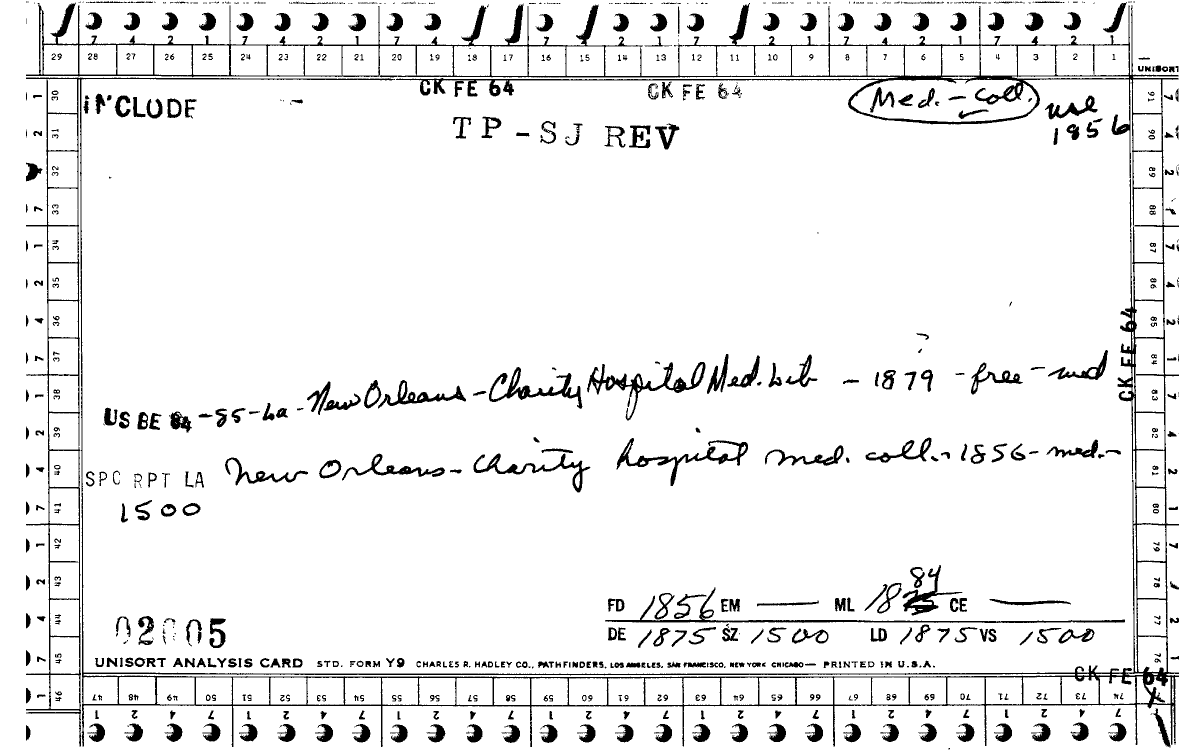 7 4 2 1 7 4 2 1 7 4 2 1 7 4 2 1 7 4 2 1 7 4 2 1 7 4 2 1
29 28 27 26 25 24 23 22 21 20 19 18 17 16 15 14 13 12 11 10 9 8 7 6 5 4 3 2 1
UNISORT
CK FE 64 CK FE 64 Med. - Coll. use
INCLUDE 1856
TP - SJ REV
CK FE 64
US BE 84 - 85 - La - New Orleans - Charity Hospital Med. Lib - 1879 - free - med
?
SPC RPT LA New Orleans - Charity hospital med. coll. - 1856 - med. -
1500
84
FD 1856 EM — ML 18 CE —
02605 DE 1875 SZ 1500 LD 1875 VS 1500
UNISORT ANALYSIS CARD STD. FORM Y9 CHARLES R. HADLEY CO., PATHFINDERS, LOS ANGELES, SAN FRANCISCO, NEW YORK CHICAGO — PRINTED IN U.S.A.
CK FE 64
30 31 32 33 34 35 36 37 38 39 40 41 42 43 44 45 46
47 48 49 50 51 52 53 54 55 56 57 58 59 60 61 62 63 64 65 66 67 68 69 70 71 72 73 74
76 77 78 79 80 81 82 83 84 85 86 87 88 89 90 91